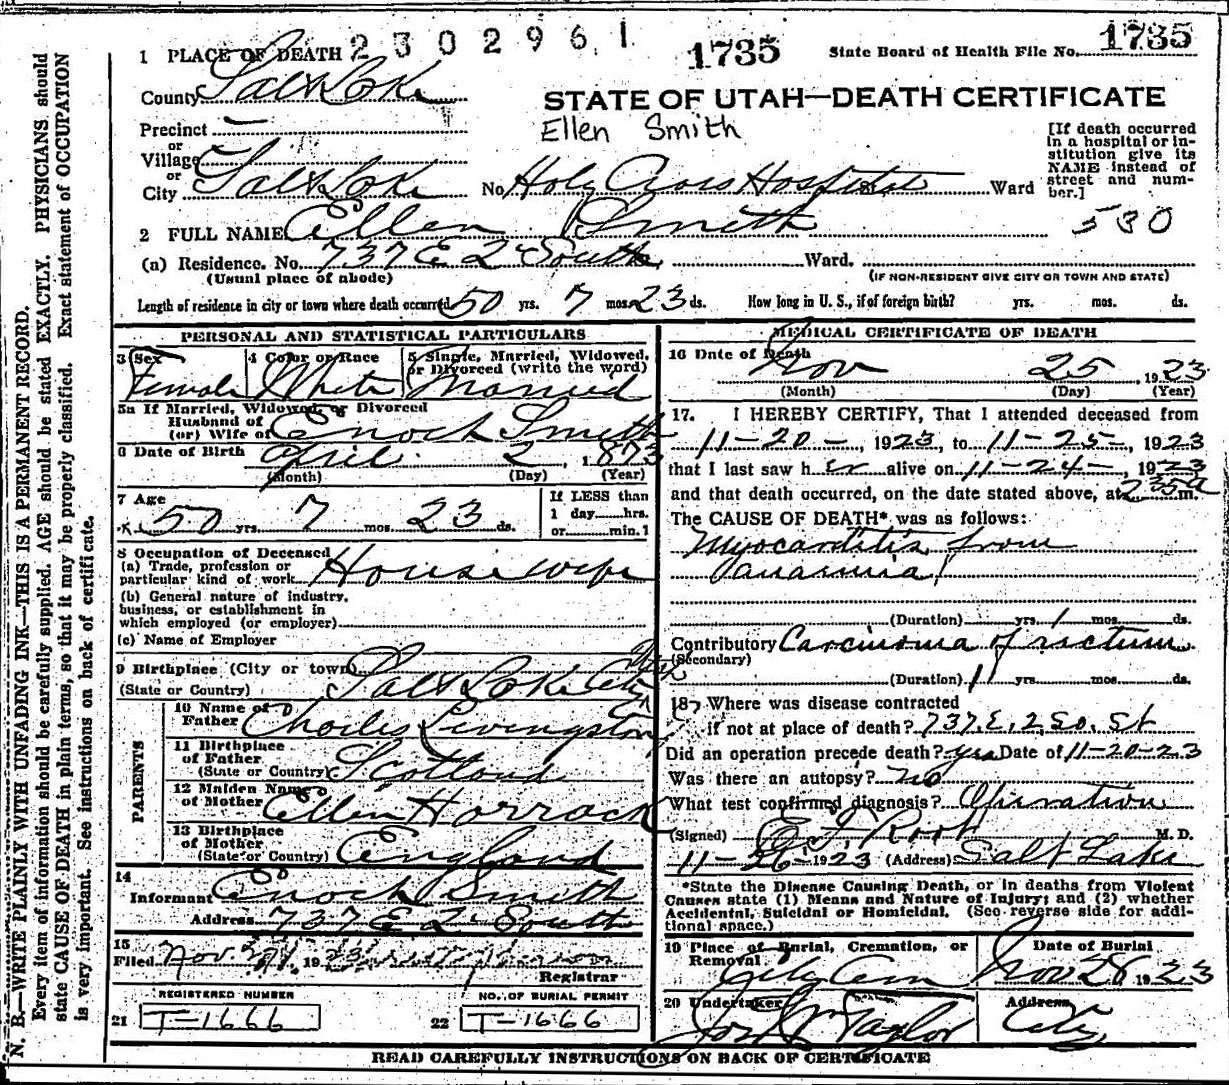 2302961
1735
State Board of Health File No. 1735
1 PLACE OF DEATH
County Salt Lake
STATE OF UTAH—DEATH CERTIFICATE
Ellen Smith
Precinct —
or
Village —
or
City Salt Lake No. Holy Cross Hospital St. Ward
[If death occurred
in a hospital or in-
stitution give its
NAME instead of
street and num-
ber.]
2 FULL NAME Ellen Smith
530
(a) Residence. No. 737 E 2 South Ward.
(Usual place of abode) (IF NON-RESIDENT GIVE CITY OR TOWN AND STATE)
Length of residence in city or town where death occurred 50 yrs. 7 mos. 23 ds. How long in U. S., if of foreign birth? yrs. mos. ds.
PERSONAL AND STATISTICAL PARTICULARS
3 Sex 4 Color or Race 5 Single, Married, Widowed,
or Divorced (write the word)
Female White Married
5a If Married, Widowed, or Divorced
Husband of
(or) Wife of Enoch Smith
6 Date of Birth April 2, 1873
(Month) (Day) (Year)
7 Age
50 yrs. 7 mos. 23 ds.
If LESS than
1 day hrs.
or min.
8 Occupation of Deceased
(a) Trade, profession or
particular kind of work Housewife
(b) General nature of industry,
business, or establishment in
which employed (or employer)
(c) Name of Employer
9 Birthplace (City or town) Salt Lake City Utah
(State or Country)
PARENTS
10 Name of
Father Charles Livingston
11 Birthplace
of Father
(State or Country) Scotland
12 Maiden Name
of Mother Ellen Horrock
13 Birthplace
of Mother
(State or Country) England
14
Informant Enoch Smith
Address 737 E 2 South
15
Filed Nov. 1923
Registrar
REGISTERED NUMBER NO. OF BURIAL PERMIT
21 T-1666 22 T-1666
MEDICAL CERTIFICATE OF DEATH
16 Date of Death
Nov 25, 1923
(Month) (Day) (Year)
17. I HEREBY CERTIFY, That I attended deceased from
11-20-, 1923, to 11-25-, 1923
that I last saw her alive on 11-24-, 1923
and that death occurred, on the date stated above, at 2 35 a m.
The CAUSE OF DEATH* was as follows:
Myocarditis from
(Duration) yrs. 1 mos. ds.
Contributory Carcinoma of rectum
(Secondary)
(Duration) 1 yrs. mos. ds.
18 Where was disease contracted
if not at place of death? 737. E. 2 So. St
Did an operation precede death? yes Date of 11-20-23
Was there an autopsy? no
What test confirmed diagnosis? Operation
(Signed) E. F. Root M. D.
11-26-1923 (Address) Salt Lake
*State the Disease Causing Death, or in deaths from Violent
Causes state (1) Means and Nature of Injury; and (2) whether
Accidental, Suicidal or Homicidal. (See reverse side for addi-
tional space.)
19 Place of Burial, Cremation, or
Removal City Cem
Date of Burial
Nov 28 1923
20 Undertaker Address
Jos. Wm Taylor City
READ CAREFULLY INSTRUCTIONS ON BACK OF CERTIFICATE
N. B.—WRITE PLAINLY WITH UNFADING INK—THIS IS A PERMANENT RECORD.
Every item of information should be carefully supplied. AGE should be stated EXACTLY. PHYSICIANS should
state CAUSE OF DEATH in plain terms, so that it may be properly classified. Exact statement of OCCUPATION
is very important. See instructions on back of certificate.